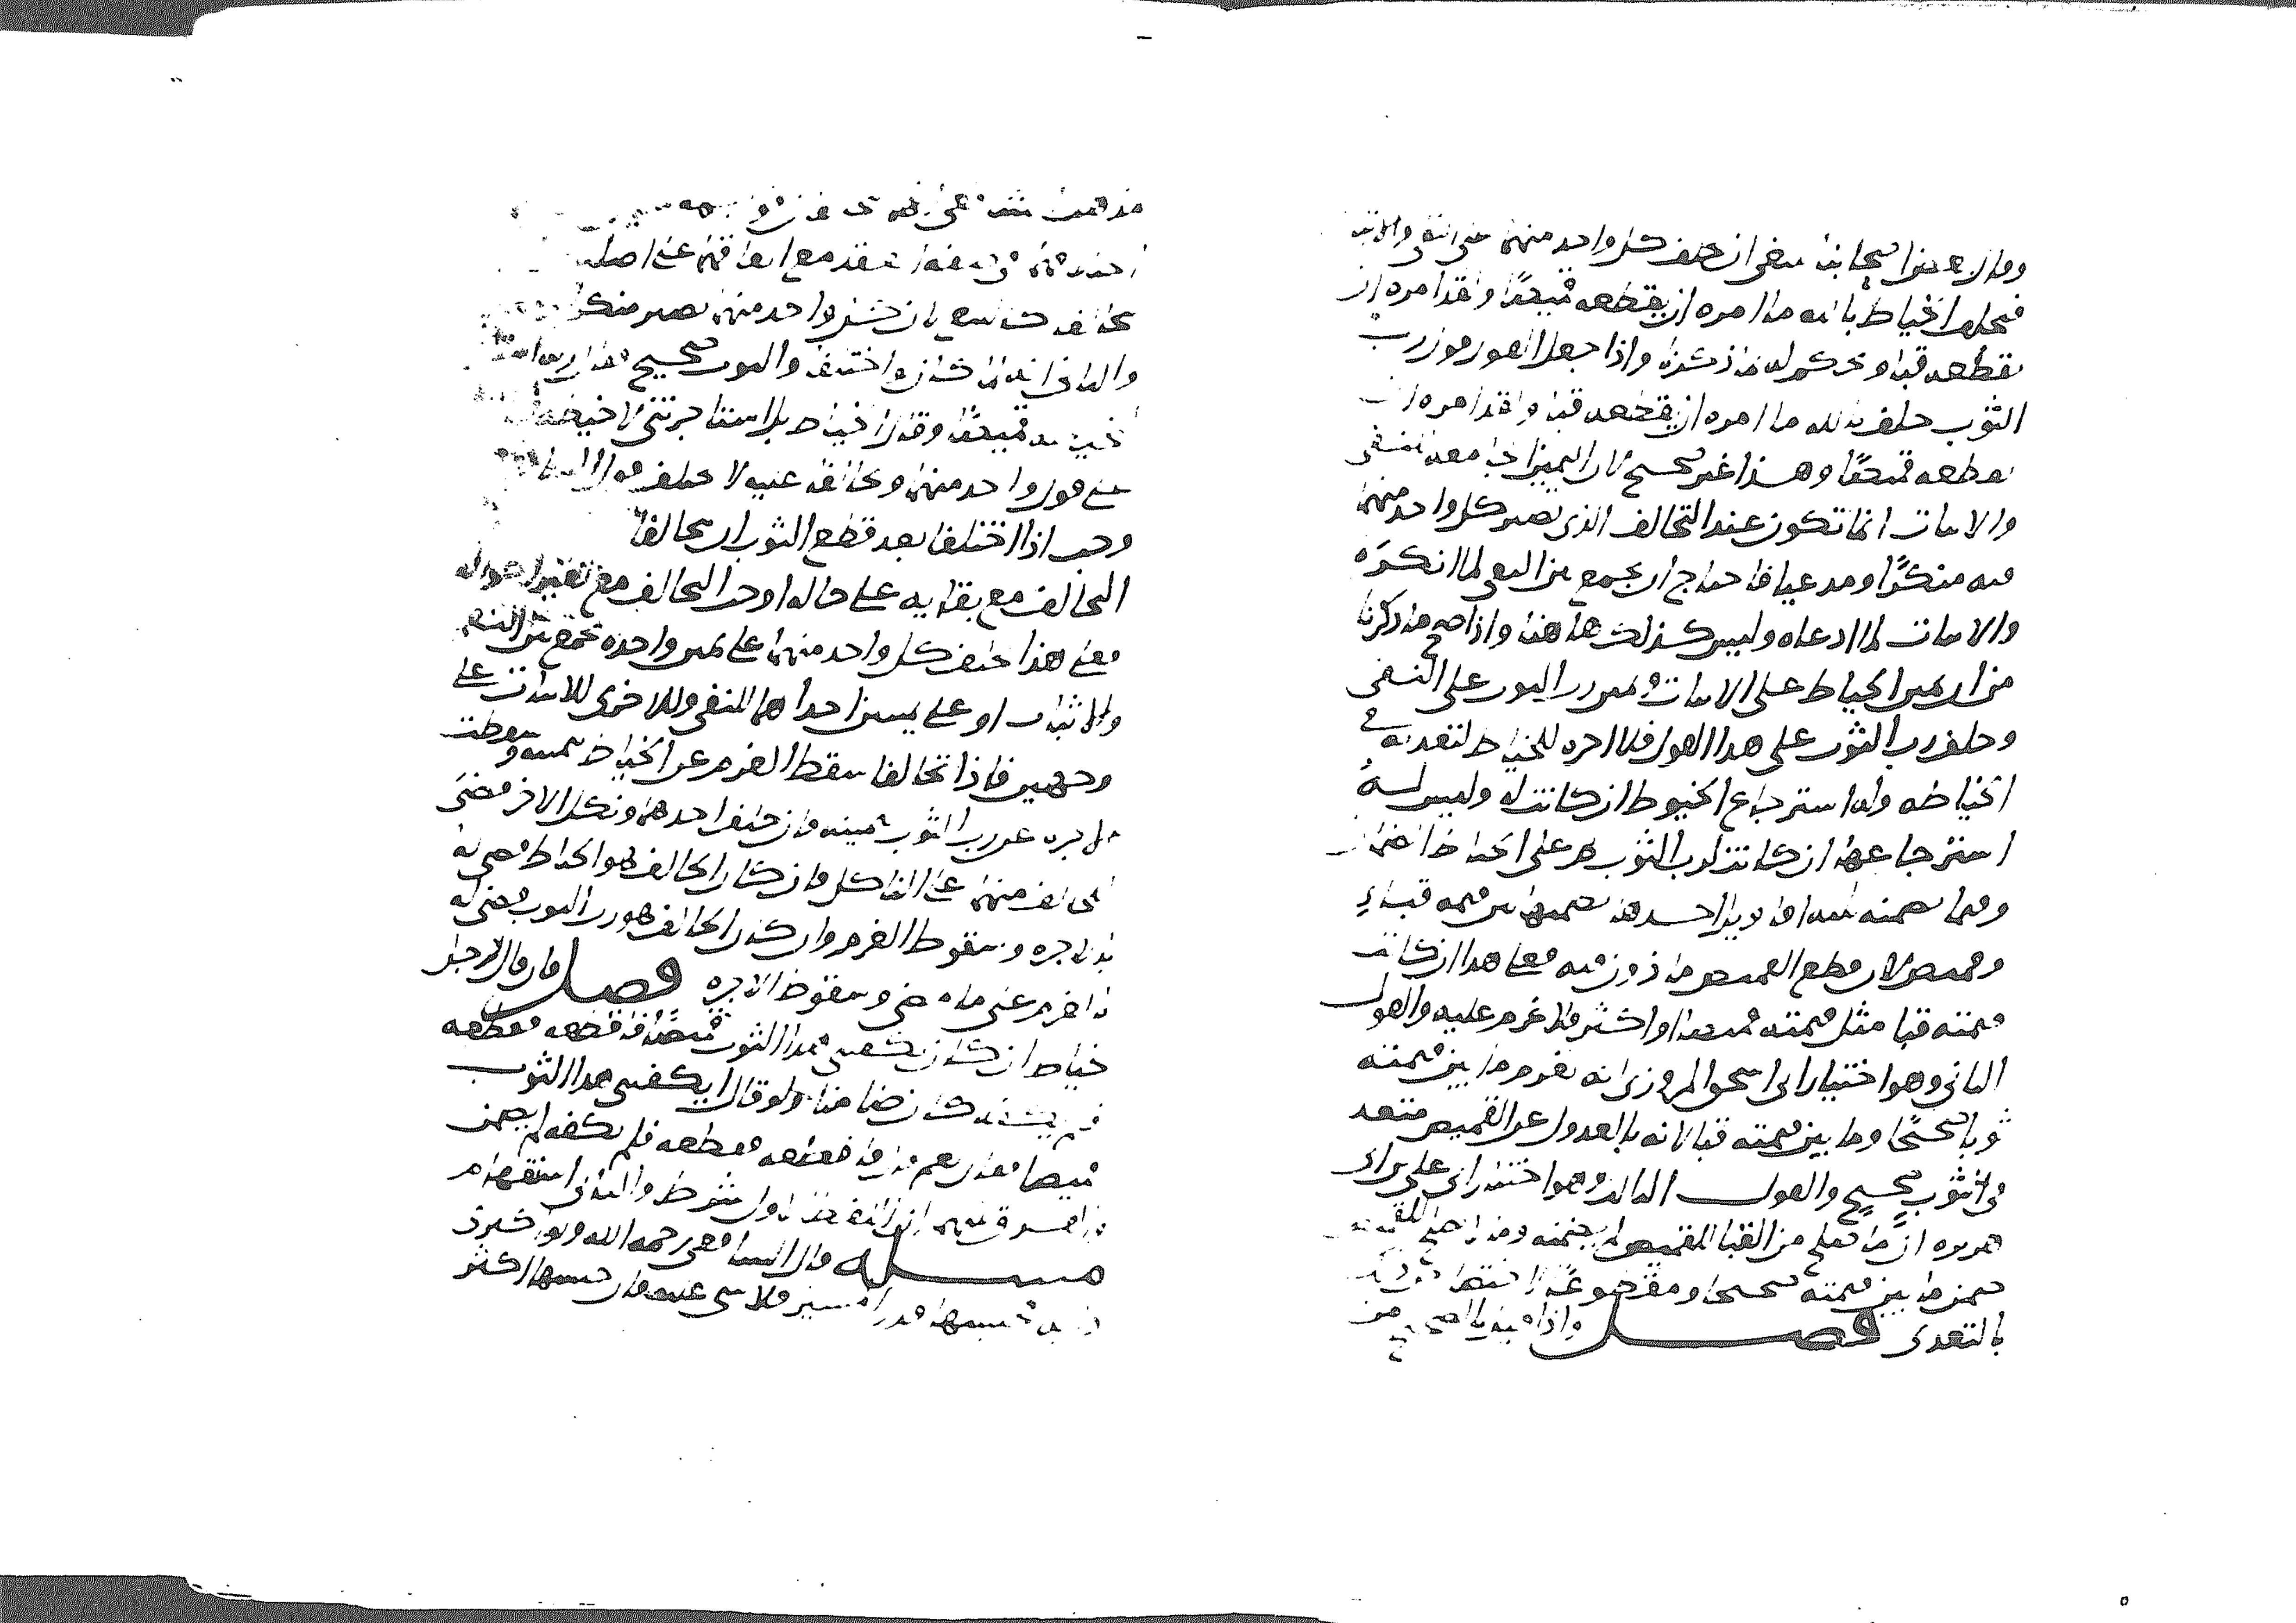 وقال بعض اصحابنا ينبغي ان يحلف كل واحد منهما على النفي والاثبات
فيحلف الخياط بالله ما امره ان يقطعه قميصا ولقد امره ان
يقطعه قبا ويحكم له بما ذكرنا واذا جعل القول قول رب
الثوب حلف بالله ما امره ان يقطعه قبا ولقد امره ان
يقطعه قميصا وهذا غير صحيح لان اليمين الجامعة للنفي
والاثبات انما تكون عند التحالف الذي يصير كل واحد منهما
فيه منكرا ومدعيا فاحتاج ان يجمع بين النفي لما انكره
والاثبات لما ادعاه وليس كذلك هاهنا واذا صح ما ذكرنا
من ان يمين الخياط على الاثبات ويمين رب الثوب على النفي
وحلف رب الثوب على هذا القول فلا اجره للخياط لتعديه في
الخياطه وله استرجاع الخيوط ان كانت له وليس له
استرجاعها ان كانت لرب الثوب وعلى الخياط الضمان
وفيما يضمنه ثلثه اقاويل احدها يضمن ما بين قيمته قباء
وقميصا لان قطع القميص ماذون فيه فعلى هذا ان كانت
قيمته قبا مثل قيمته قميصا او اكثر فلا غرم عليه والقول
الثاني وهو اختيار ابي اسحق المروزي انه يغرم ما بين قيمته
ثوبا صحيحا وما بين قيمته قبا لانه بالعدول عن القميص متعد
في ثوب صحيح والقول الثالث وهو اختيار ابي علي بن ابي
هريره ان ما صلح من القبا للقميص لم يضمنه وما لم يصلح للقميص
ضمن ما بين قيمته صحيحا ومقطوعا
بالتعدي فصل واذا من
على اصل
تحالف كل واحد منهما يصير منكرا
والثاني انهما لو اختلفا والثوب صحيح فقال
قميصا وقال الخياط بل استاجرتني لاخيطه
على قول واحد منهما وتحالفا عليه لا يختلف قول الشافعي
وجب اذا اختلفا بعد قطع الثوب ان يتحالفا
التحالف مع بقايه على حاله اوجب التحالف مع تغير احواله
فعلى هذا يحلف كل واحد منهما على يمين واحده تجمع بين النفي
والاثبات او على يمينين احداهما للنفي والاخرى للاثبات على
وجهين فاذا تحالفا سقط الغرم عن الخياط بيمينه وسقطت
الاجره عن رب الثوب بيمينه وان حلف احدهما ونكل الاخر قضي
للحالف منهما على الناكل فان كان الحالف هو الخياط قضي له
بالاجره وسقوط الغرم وان كان الحالف هو رب الثوب قضي له
بالغرم على ما مضى وسقوط الاجره فصل فان قال الرجل
لخياط ان كان يكفيني هذا الثوب قميصا فاقطعه فقطعه
فلم يكفه كان ضامنا ولو قال ايكفيني هذا الثوب
قميصا فقال نعم قال فاقطعه فقطعه فلم يكفه لم يضمن
والفرق بينهما ان اللفظ الاول شرط والثاني استفهام
مسله قال الشافعي رحمه الله ولو اكترى
دابه فحبسها قدر المسير فلا شي عليه وان حبسها اكثر